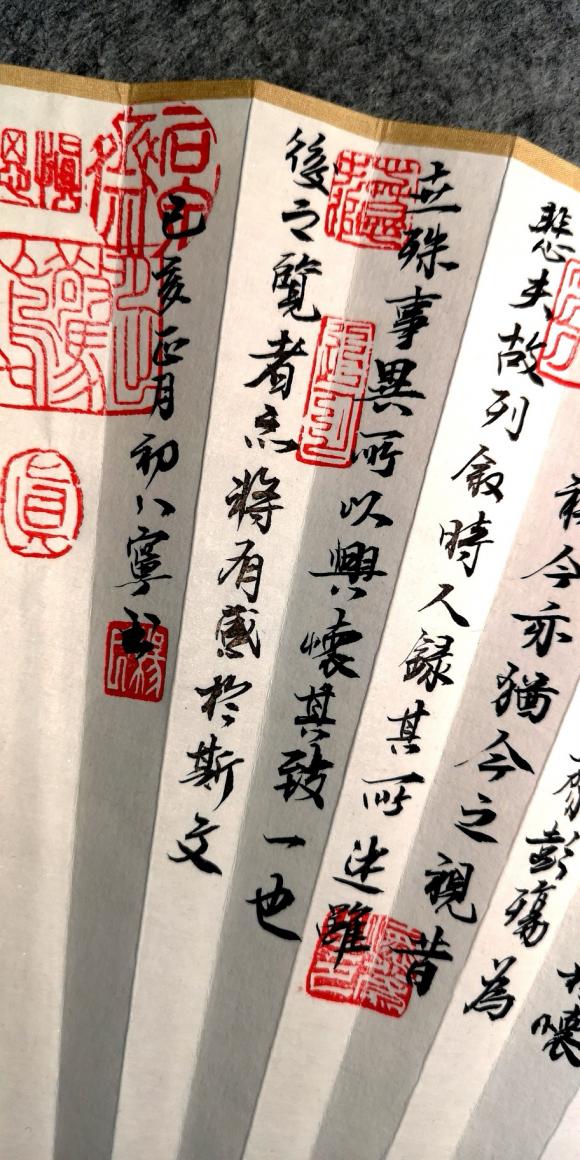 於懷
齊彭殤為
視今亦猶今之視昔
悲夫故列敘時人錄其所述雖
世殊事異所以興懷其致一也
後之覽者亦將有感於斯文
己亥正月初八寧書
真